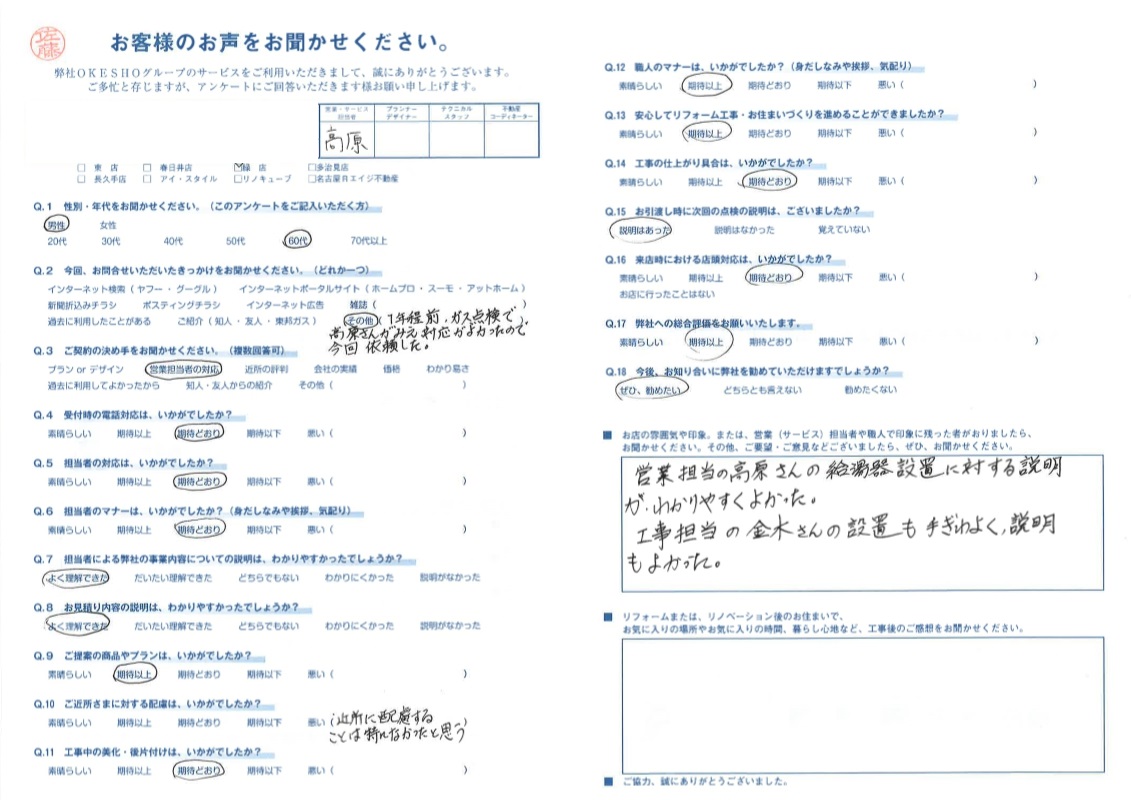 佐藤
お客様のお声をお聞かせください。
弊社OKESHOグループのサービスをご利用いただきまして、誠にありがとうございます。
ご多忙と存じますが、アンケートにご回答いただきます様お願い申し上げます。
営業・サービス担当者 プランナーデザイナー テクニカルスタッフ 不動産コーディネーター
高原
□ 東 店 □ 春日井店 ☑緑 店 □多治見店
□ 長久手店 □ アイ・スタイル □リノキューブ □名古屋Rエイジ不動産
Q.1 性別・年代をお聞かせください。（このアンケートをご記入いただく方）
男性 女性
20代 30代 40代 50代 60代 70代以上
Q.2 今回、お問合せいただいたきっかけをお聞かせください。（どれか一つ）
インターネット検索（ ヤフー ・ グーグル ） インターネットポータルサイト（ ホームプロ ・ スーモ ・ アットホーム ）
新聞折込みチラシ ポスティングチラシ インターネット広告 雑誌（ ）
過去に利用したことがある ご紹介（ 知人 ・ 友人 ・ 東邦ガス ） その他（1年程前、ガス点検で）
高原さんがみえ対応がよかったので
今回依頼した。
Q.3 ご契約の決め手をお聞かせください。（複数回答可）
プラン or デザイン 営業担当者の対応 近所の評判 会社の実績 価格 わかり易さ
過去に利用してよかったから 知人・友人からの紹介 その他（ ）
Q.4 受付時の電話対応は、いかがでしたか？
素晴らしい 期待以上 期待どおり 期待以下 悪い（ ）
Q.5 担当者の対応は、いかがでしたか？
素晴らしい 期待以上 期待どおり 期待以下 悪い（ ）
Q.6 担当者のマナーは、いかがでしたか？（身だしなみや挨拶、気配り）
素晴らしい 期待以上 期待どおり 期待以下 悪い（ ）
Q.7 担当者による弊社の事業内容についての説明は、わかりやすかったでしょうか？
よく理解できた だいたい理解できた どちらでもない わかりにくかった 説明がなかった
Q.8 お見積り内容の説明は、わかりやすかったでしょうか？
よく理解できた だいたい理解できた どちらでもない わかりにくかった 説明がなかった
Q.9 ご提案の商品やプランは、いかがでしたか？
素晴らしい 期待以上 期待どおり 期待以下 悪い（ ）
Q.10 ご近所さまに対する配慮は、いかがでしたか？
素晴らしい 期待以上 期待どおり 期待以下 悪い（近所に配慮する）
ことは特になかったと思う
Q.11 工事中の美化・後片付けは、いかがでしたか？
素晴らしい 期待以上 期待どおり 期待以下 悪い（ ）
Q.12 職人のマナーは、いかがでしたか？（身だしなみや挨拶、気配り）
素晴らしい 期待以上 期待どおり 期待以下 悪い（ ）
Q.13 安心してリフォーム工事・お住まいづくりを進めることができましたか？
素晴らしい 期待以上 期待どおり 期待以下 悪い（ ）
Q.14 工事の仕上がり具合は、いかがでしたか？
素晴らしい 期待以上 期待どおり 期待以下 悪い（ ）
Q.15 お引渡し時に次回の点検の説明は、ございましたか？
説明はあった 説明はなかった 覚えていない
Q.16 来店時における店頭対応は、いかがでしたか？
素晴らしい 期待以上 期待どおり 期待以下 悪い（ ）
お店に行ったことはない
Q.17 弊社への総合評価をお願いいたします。
素晴らしい 期待以上 期待どおり 期待以下 悪い（ ）
Q.18 今後、お知り合いに弊社を勧めていただけますでしょうか？
ぜひ、勧めたい どちらとも言えない 勧めたくない
■ お店の雰囲気や印象。または、営業（サービス）担当者や職人で印象に残った者がおりましたら、
お聞かせください。その他、ご要望・ご意見などございましたら、ぜひ、お聞かせください。
営業担当の高原さんの給湯器設置に対する説明
が、わかりやすくよかった。
工事担当の金水さんの設置も手ぎわよく、説明
もよかった。
■ リフォームまたは、リノベーション後のお住まいで、
お気に入りの場所やお気に入りの時間、暮らし心地など、工事後のご感想をお聞かせください。
■ ご協力、誠にありがとうございました。